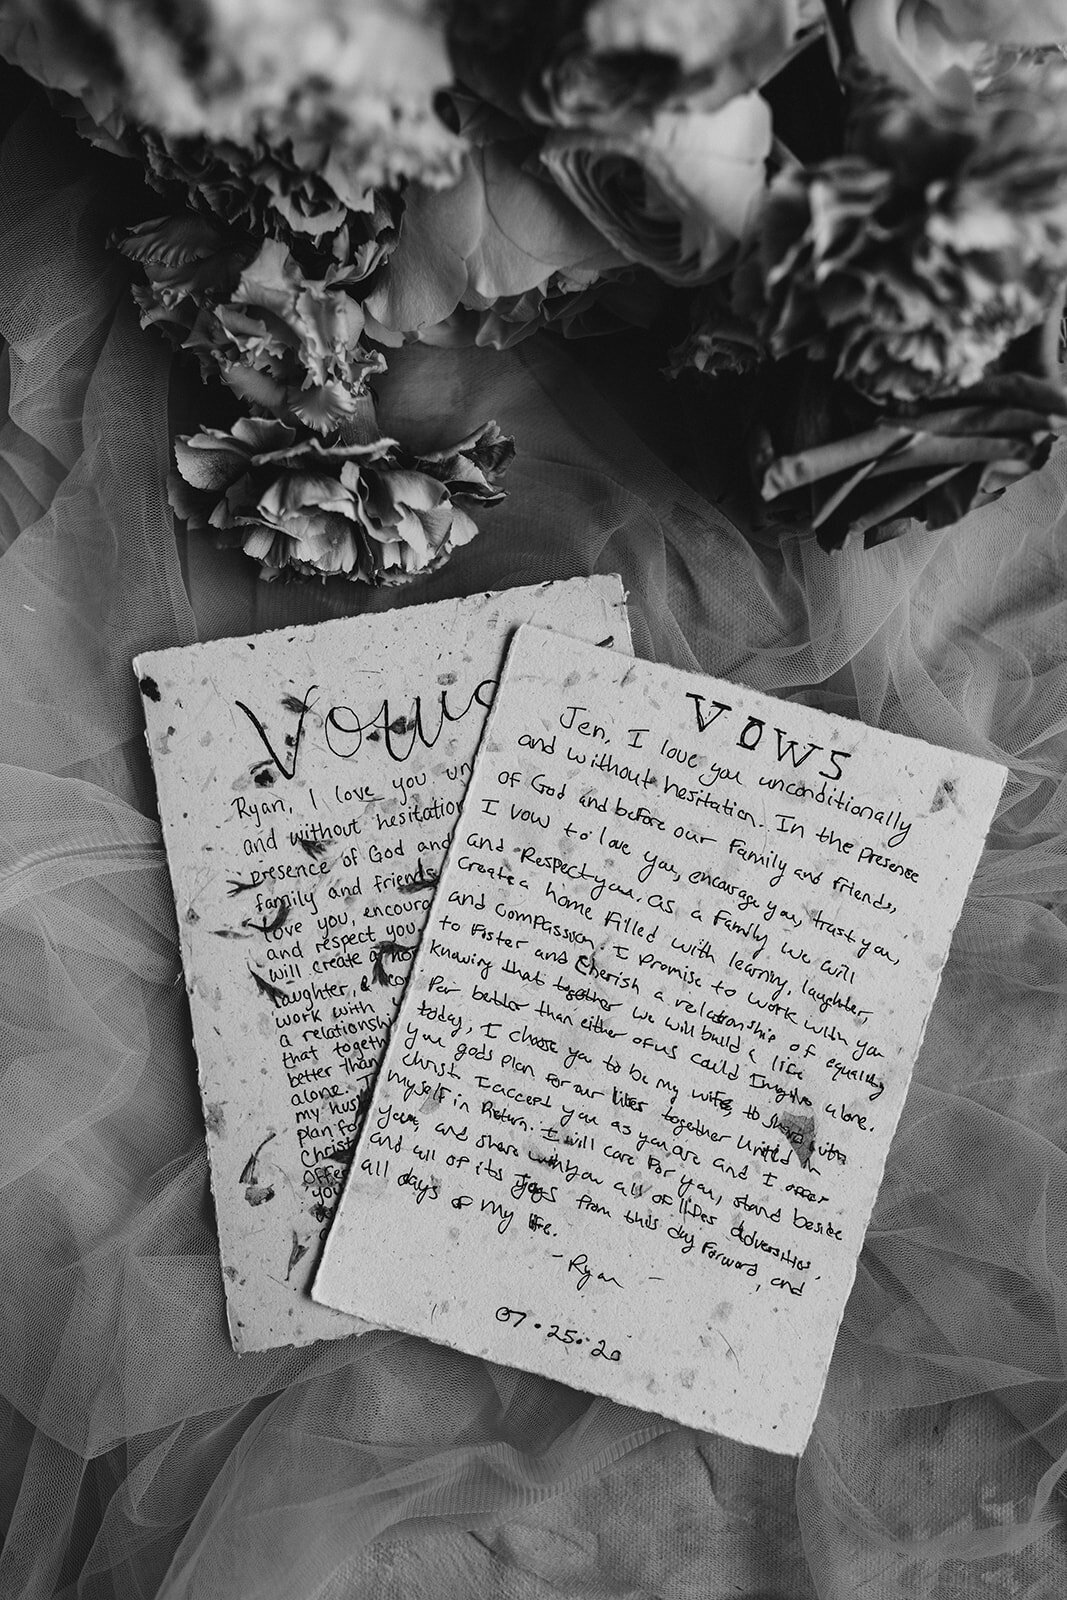 Vows
Ryan, I love you un
and without hesitation
presence of God and
family and friends
love you, encoura
and respect you.
will create a ho
laughter, & co
work with
a relationshi
that togeth
better than
alone. T
my hus
plan fo
Christ
offe
you
VOWS
Jen, I love you unconditionally
and without hesitation. In the presence
of God and before our Family and friends,
I vow to love you, encourage you, trust you,
and Respect you. As a Family we will
create a home filled with learning, laughter,
and compassion. I promise to work with you
to foster and Cherish a relationship of equality
knowing that together we will build a life
far better than either of us could Imagine alone.
today, I choose you to be my wife, to share with
you gods plan for our lives together United in
Christ. I accept you as you are and I offer
myself in Return. I will care for you, stand beside
you, and share with you all of lifes adversities,
and all of its joys from this day forward, and
all days of my life.
- Ryan -
07.25.20